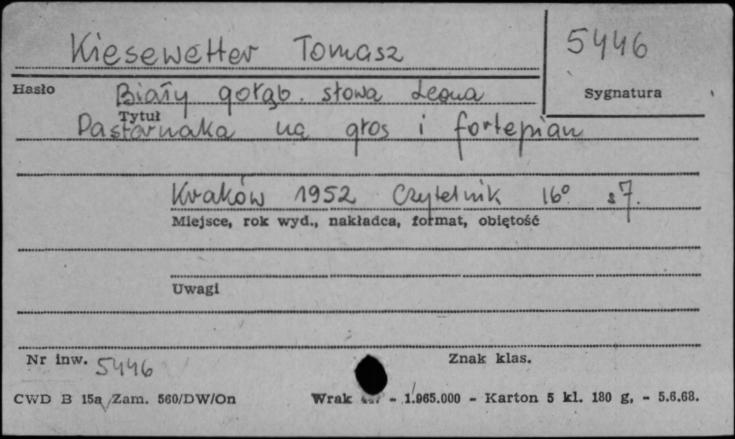 Kiesewetter Tomasz
5446
Hasło
Sygnatura
Biały gołąb. słowa Leona
Tytuł
Pasternaka na głos i fortepian
Kraków 1952 Czytelnik 16° s 7.
Miejsce, rok wyd., nakładca, format, obiętość
Uwagi
Nr inw. 5446
Znak klas.
CWD B 15a Zam. 560/DW/On
Wrak - 1.965.000 - Karton 5 kl. 180 g. - 5.6.68.